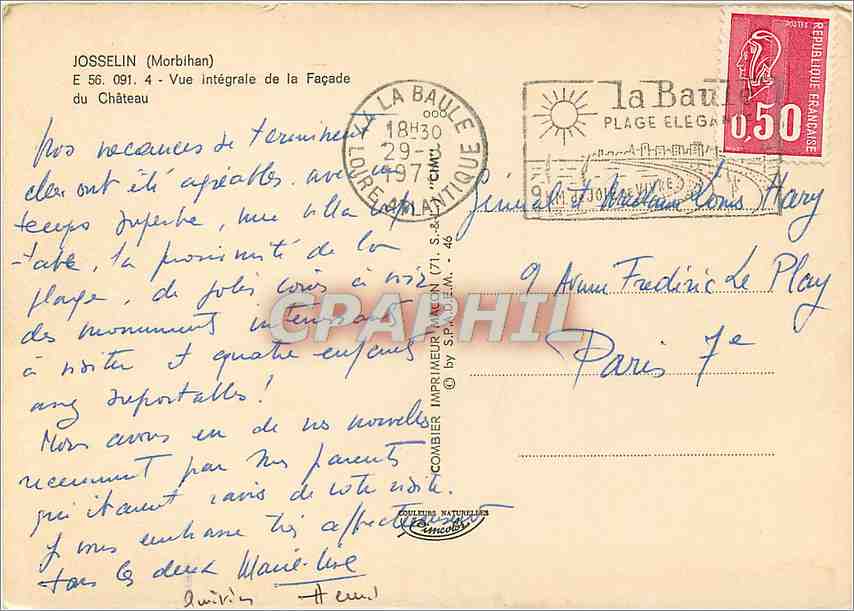 JOSSELIN (Morbihan)
E 56. 091. 4 - Vue intégrale de la Façade
du Château
Nos vacances se terminent
elles ont été agréables. avec un
temps superbe, une villa confor
-table, la proximité de la
plage, de jolis coins à voir
des monuments intéressants
à visiter et quatre enfants
assez supportables !
Nous avons eu de vos nouvelles
récemment par mes parents
qui étaient ravis de votre visite.
Je vous embrasse très affectueusement
tous les deux Marie-Lise
LA BAULE
18H30
29-
197
LOIRE-ATLANTIQUE
la Baule
PLAGE ELEGANTE
9 KM de JOIE de VIVRE
REPUBLIQUE FRANÇAISE
0,50
Général et Madame Louis Hary
9 Avenue Frédéric Le Play
Paris 7e
COMBIER IMPRIMEUR MACON (71. S.-&-L.) "CIM"
© by S.P.A.D.E.M. - 46
COULEURS NATURELLES
Cimcolor
CPAPHIL